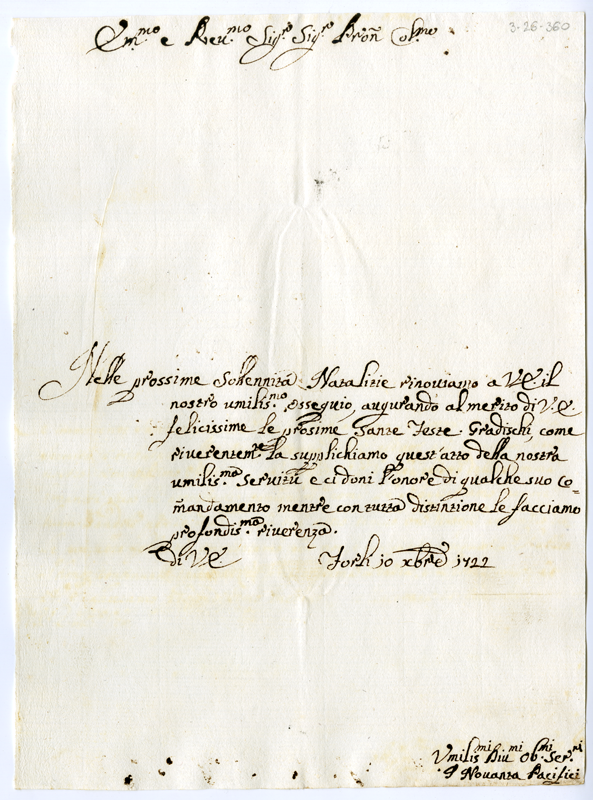 Em.mo e Reu.mo Sig.re Sig.re Pron Col.mo
3-26-360
Nelle prossime Sollennità Natalizie rinouiamo a V.E. il
nostro umilis.mo osseguio, augurando al merito di V.E.
felicissime le prosime Sante Feste. Gradischi, come
riuerentem.te la supplichiamo quest'atto della nostra
umilis.ma seruitù e ci doni l'onore di qualche suo co=
mandamento mentre con tutta distintione le facciamo
profondis.ma riuerenza.
di V.E. Forlì 10 Xbre 1722
Vmilis.mi Diu.mi Ob. Ser.ri
I Nouanta Pacifici